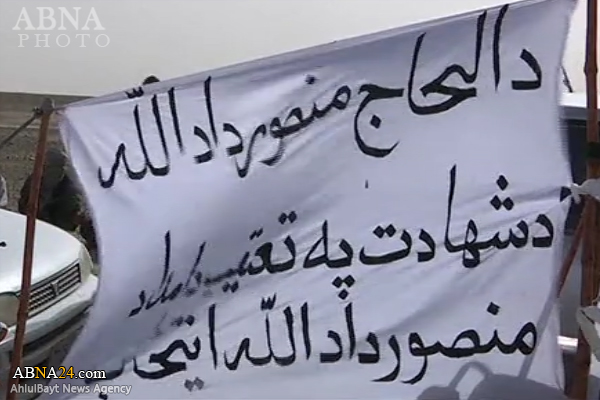 ABNA
PHOTO
دالحاج منصور داد الله
دشهادت په تعقیب
منصور داد الله
ABNA24.com
AhlulBayt News Agency